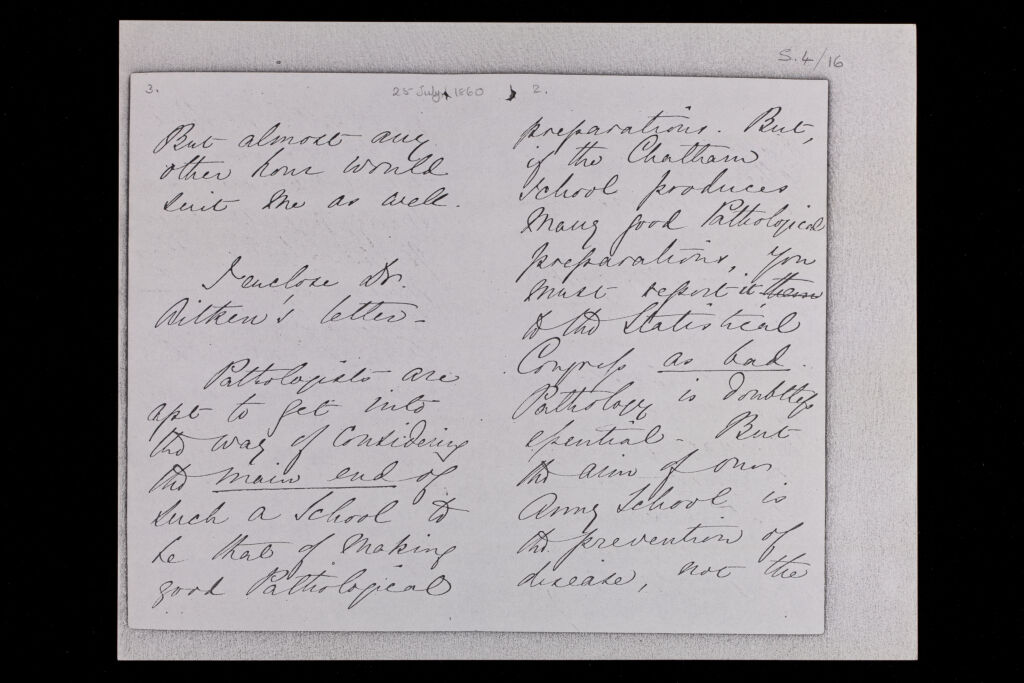 S.4/16
3.
25 July 1860
2.
But almost any
other hour would
suit me as well.
I enclose Dr.
Aitken's letter -
Pathologists are
apt to get into
the way of considering
the main end of
such a School to
be that of making
good Pathological
preparations. But,
if the Chatham
School produces
many good Pathological
preparations, you
must report it them
to the Statistical
Congress as bad.
Pathology is doubtless
essential - But
the aim of our
Army School is
the prevention of
disease, not the